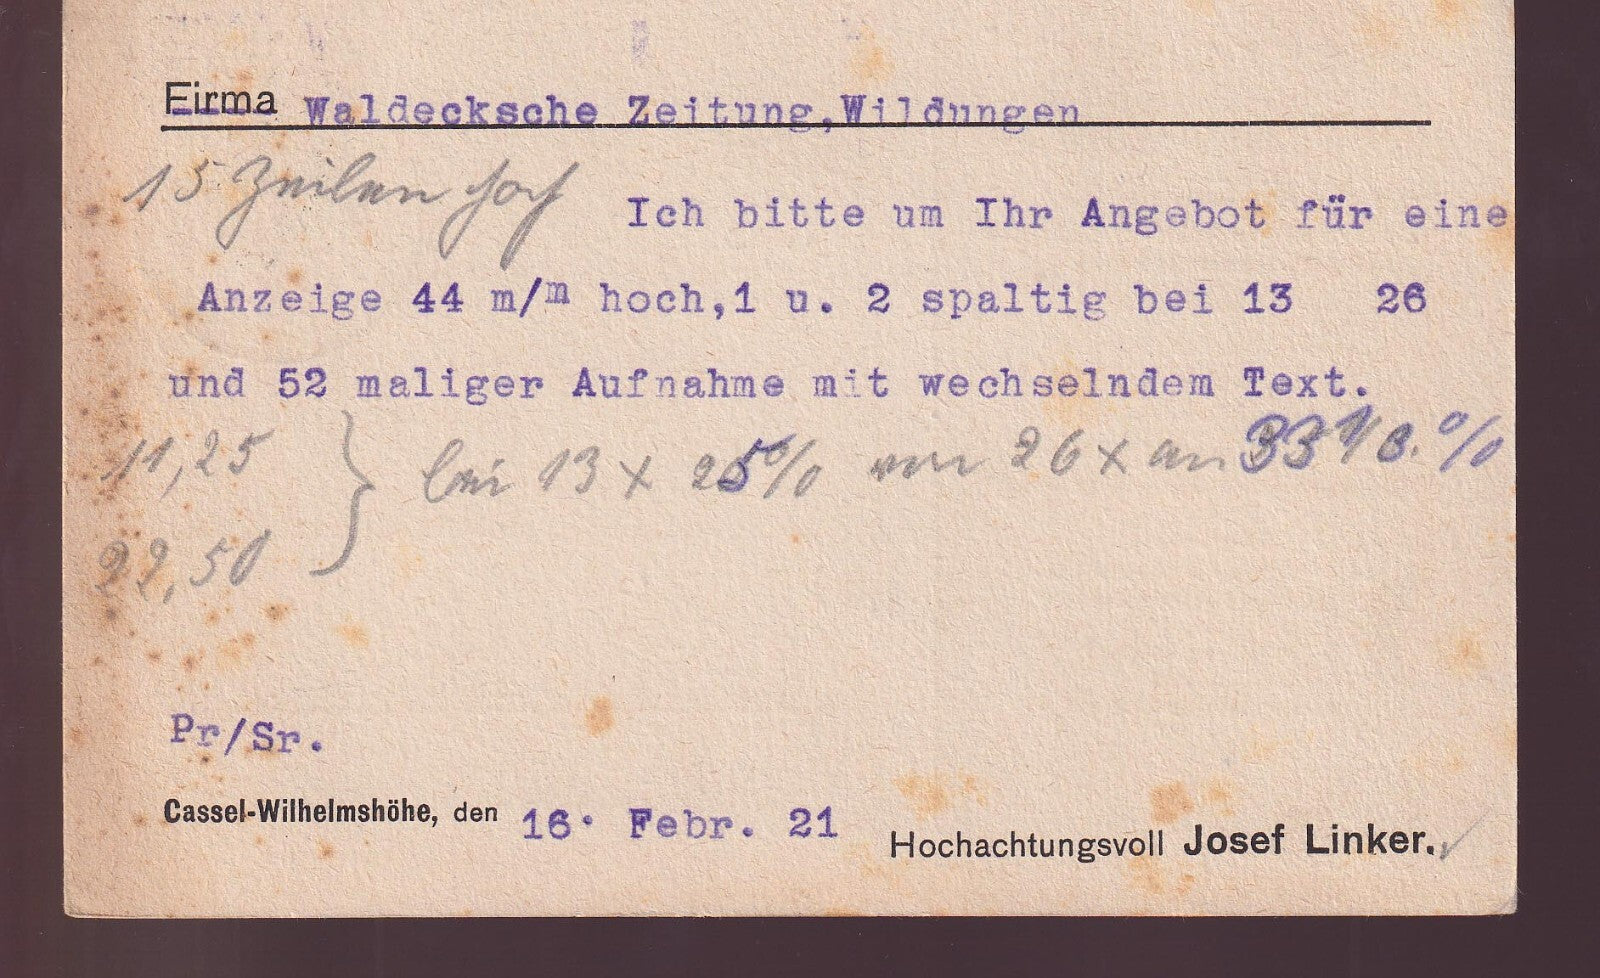 Firma Waldecksche Zeitung,Wildungen
15 Zeilen hoch
Ich bitte um Ihr Angebot für eine
Anzeige 44 m/m hoch,1 u. 2 spaltig bei 13 26
und 52 maliger Aufnahme mit wechselndem Text.
11,25 } bei 13 x 25% von 26 x an 33 1/3.%
22,50
Pr/Sr.
Cassel-Wilhelmshöhe, den 16. Febr. 21
Hochachtungsvoll Josef Linker.